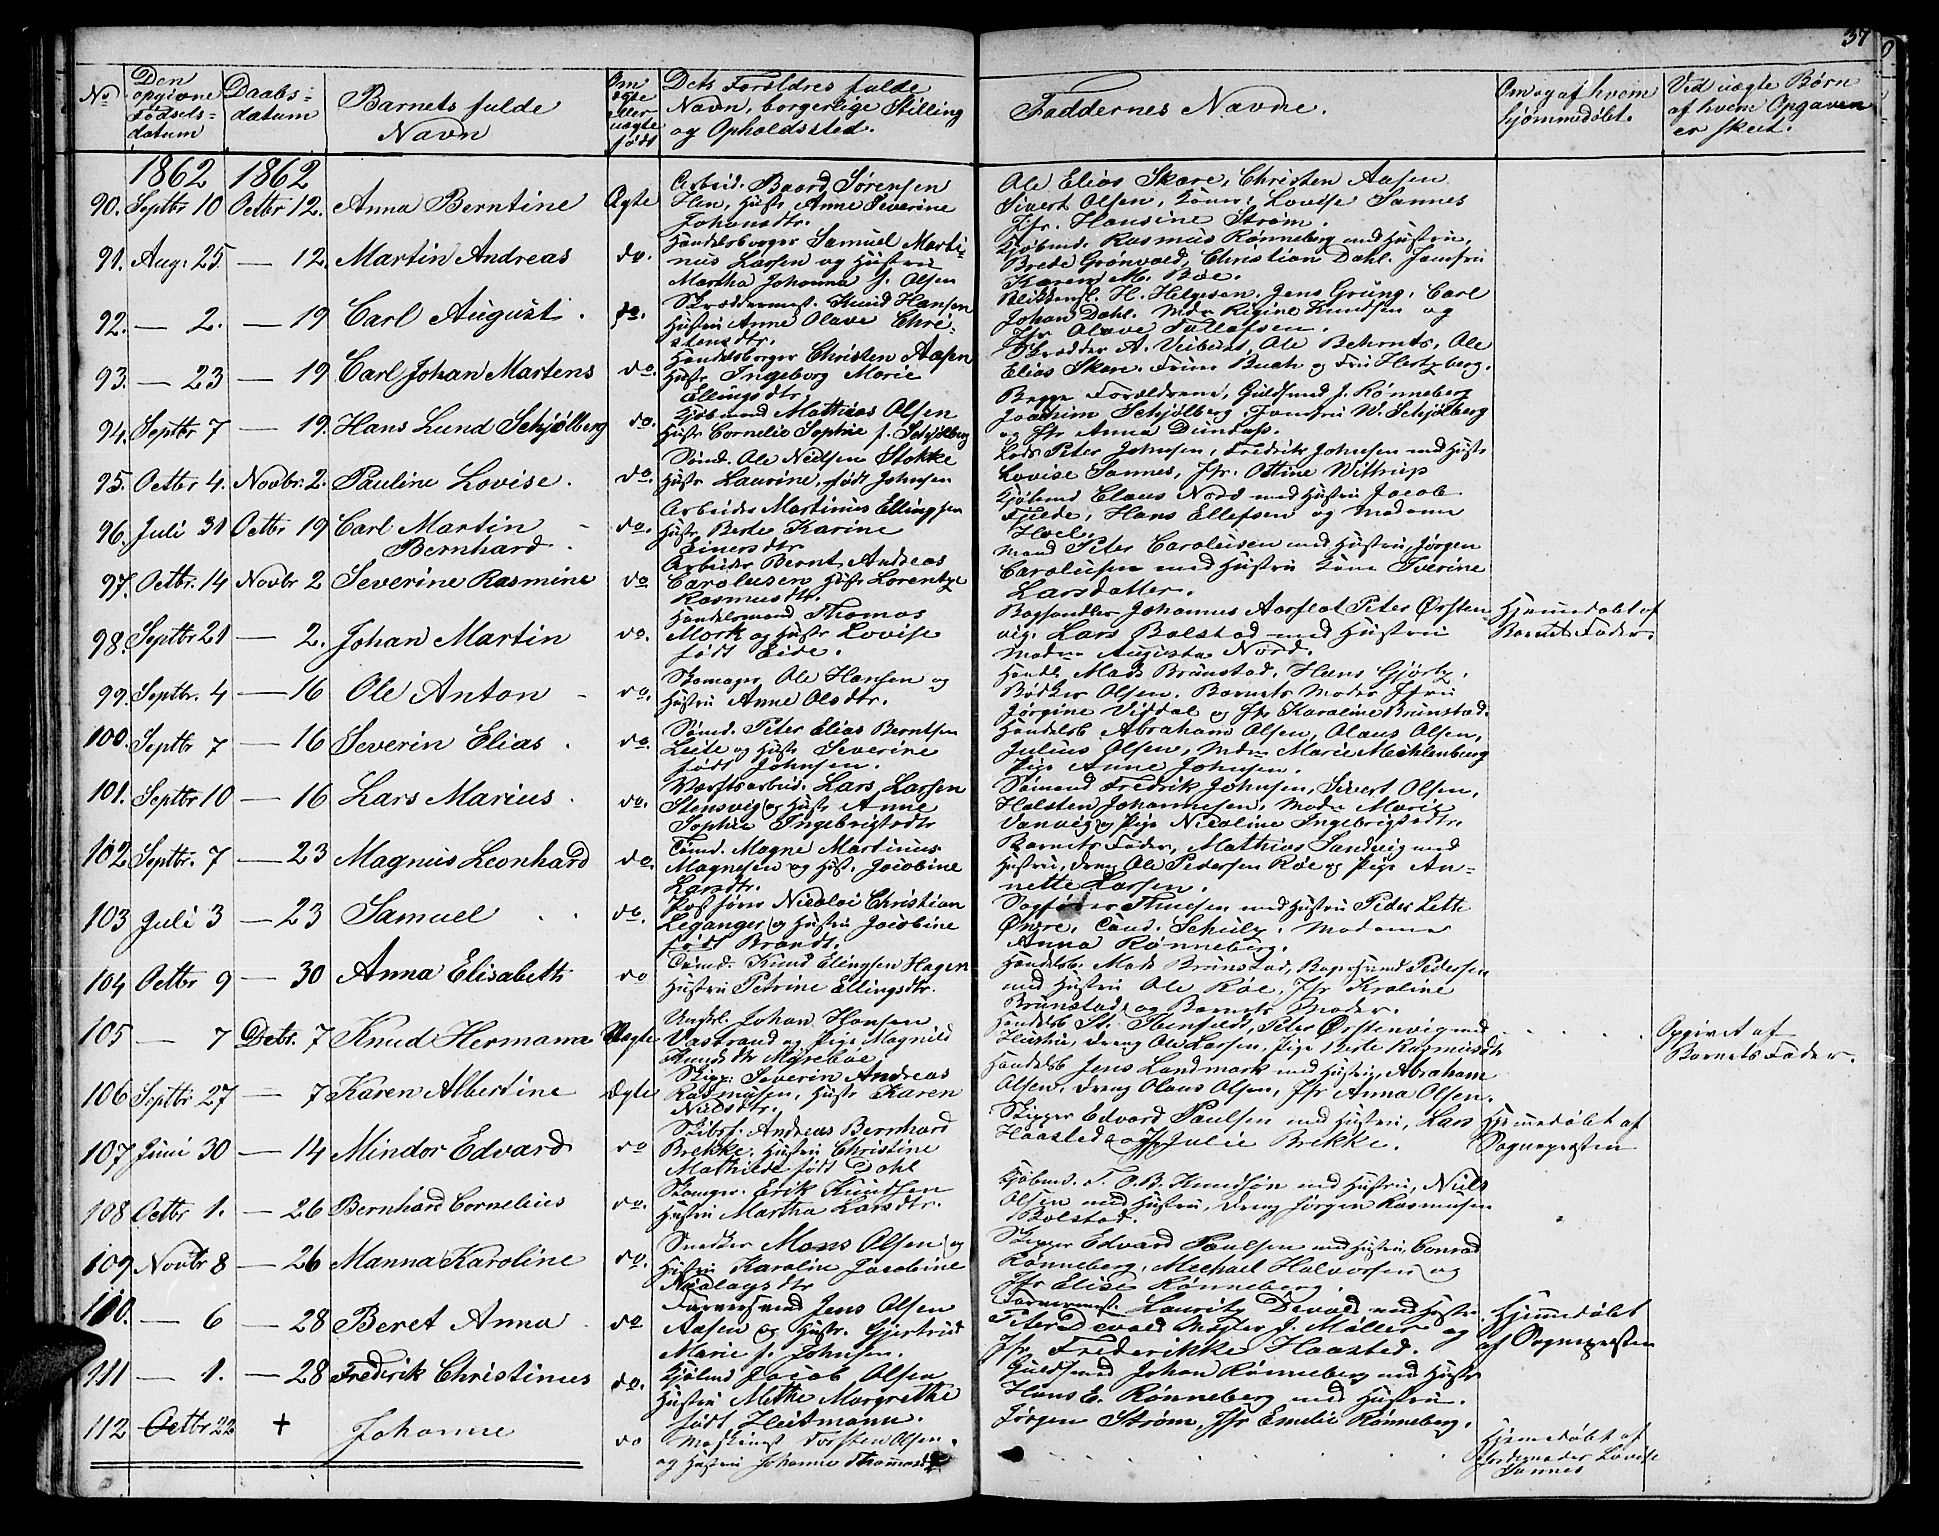 37
No
Den opgivne Fødsels-datum
Daabs-datum
Barnets fulde Navn
Om ægte eller uægte født
Dets Forældres fulde Navn, borgerlige Stilling og Opholdssted.
Faddernes Navne.
Om og af hvem hjemmedøbt.
Ved uægte Børn af hvem Opgaven er skeet.
1862 1862
90. Septbr 10 Octbr 12. Anna Berntine Ægte
Arbeid. Baard Sørensen
Hen, Hustr Anne Severine
Johansdtr.
Ole Elias Skare, Christen Aasen
Sivert Olsen, Kone: Lovise Sannes
Jfr. Hansine Strøm.
91. Aug. 25. — 12. Martin Andreas do.
Handelsborger Samuel Marti-
nus Larsen og Hustru
Martha Johanna f. Olsen
Kjøbmd. Rasmus Rønneberg med Hustru,
Brede Grønvold, Christian Dahl. Jomfru
Karen M. Bøe.
92. — 2. — 19 Carl August. do.
Skræddermest. Knud Hansen
Hustru Anne Olave Chri-
stensdtr.
Blikkensl. H. Helgesen. Jens Grung, Carl
Johan Dahl. Mdm Regine Knudsen og
Jfr Olave Tollefsen.
93. — 23 — 19 Carl Johan Martens do.
Handelsborger Christen Aasen
Hustr Ingeborg Marie
Ellingsdtr.
Skrædder A. Ole Behrnts, Ole
Elias Skare. Buch og Fru Hertzberg.
94. Septbr 7 — 19. Hans Lund Schjølberg do.
Kjøbmand Mathias Olsen
Hustr Cornelie Sophie f. Schjølberg
Begge Forældrene, Guldsmed J. Rønneberg
Joachim Schjølberg, Jomfru W. Schjølberg
og Jfr Anna Dundas.
95. Octbr 4. Novbr. 2. Pauline Lovise. do.
Sømd. Ole Nielsen Stokke
Hustr Laurine, født Johnsen
Lods Peter Johnsen, Fredrik Johnsen med Hustr
Lovise Sannes, Jfr. Ottine Wittrup
96. Juli 31 Octbr 19 Carl Martin Bernhard. do.
Arbeider Martinus Ellingsen
Hustr Berte Karine
Einersdtr
Kjøbmd Claus Nord med Hustru Jacob
Fjelde, Hans Ellefsen og Madame
Hoel.
97. Octbr. 14 Novbr 2 Severine Rasmine do
Arbeider Bernt Andreas
Carolusen Hustr Lorentze
Rasmusdtr.
Mand Peter Carolusen med Hustru, Jørgen
Carolusen med Hustru Kone Severine
Larsdatter.
98. Septbr 21 — 2. Johan Martin do.
Handelsmand Thomas
Mork og Hustr Lovise
født Eide.
Boghandler Johannes Aarflot Peter Ørsten-
vig. Lars Bolstad med Hustru
Madm Augusta Nord.
Hjemmedøbt af
Barnets Fader.
99. Septbr. 4 — 16 Ole Anton do.
Skomager Ole Hansen og
Hustru Anne Olsdtr.
Handl. Mads Brunstad, Hans Gjørtz,
Bødker Olsen. Barnets Moder Jfru
Jørgine Viddal og Jfr Karoline Brunstad.
100. Septbr 7 — 16 Severin Elias. do
Sømd. Peter Elias Berntsen
Leite og Hustr Severine
født Johnsen.
Handelsb Abraham Olsen, Olaus Olsen,
Julius Olsen, Mdm Marie Mechlenburg
Pige Anne Johnsen.
101. Septbr 10 — 16 Lars Marius. do.
Værftsarbeid. Lars Larsen
Stensvig og Hustr Anne
Sophie Ingebrigtsdtr
Sømand Fredrik Johnsen, Sivert Olsen,
Halsten Johannesen, Madm Marie
Vanvig og Pige Nicoline Ingebrigtsdtr.
102 Septbr. 7 — 23 Magnus Leonhard do
Tømd. Magne Martinus
Magnesen og Hust. Jacobine
Larsdtr.
Barnets Fader, Mathias Sandvig med
Hustru, Dreng Ole Pedersen Røe og Pige An-
nette Larsen.
103 Juli 3 — 23 Samuel do.
Nicolai Christian
Leganger og Hustru Jacobine
født Brandt.
Sagfører Thuesen med Hustru Peder Leth
Øvre, Cand. Schulz, Madame
Anna Rønneberg.
104 Octbr 9 — 30 Anna Elisabeth do
Knud Elingsen Hagen
Hustru Petrine Ellingsdtr.
Handelsb. Mads Brunstad, Pedersen
med Hustru Ole Røe, Jfr Kroline
Brunstad og Barnets Moder.
105 — 7 Decbr. 7 Knud Hermann Uægte
Ungkl. Johan Hansen
Vastrand og Pige Magnild
Knudsdtr Myrebøe
Handelsb St. Peter Ørstenvig med
Hustru, Dreng Ole Larsen, Pige Berte Rasmusdtr
Opgivet af
Barnets Fader.
106 Septbr 27 — 7 Karen Albertine Ægte
Skipp. Severin Andreas
Rasmussen, Hustr Karen
Nielsdtr.
Handelsb Jens Landmark med Hustru, Abraham
Olsen, Dreng Olaus Olsen, Jfr Anna Olsen.
107 Juni 30 — 14 Mindor Edvard do
Skibsf. Andreas Bernhard
Brekke. Hustru Christine
Mathilde født Dahl
Skipper Edvard Paulsen med Hustru, Lars
Haasted og Jfr Julie Brekke.
Hjemmedøbt af
Sognepresten
108 Octbr 1. — 26 Bernhard Cornelius do.
Skomager. Erik Knudsen
Hustru Martha Larsdtr.
Kjøbmd. T. O. B. Knudsøn med Hustru, Niels
Olsen med Hustru, Dreng Jørgen Rasmusen
Bolstad.
109 Novbr 8 — 26 Manna Karoline do.
Snedker Mons Olsen og
Hustru Karolin Jacobine
Nicolaysdtr
Skipper Edvard Paulsen med Hustru, Conrad
Rønneberg, Mechael Halvorsen og
Jfr Elise Rønneberg.
110. — 6 — 28 Beret Anna do
Farversvend Jens Olsen
Aasen og Hustr. Gjertrud
Marie f. Johnsen.
Farvermst. Lauritz Devold med Hustr
Peter Devold Møller og
Jfr Frederikke Haasted.
Hjemmedøbt
af Sognepresten
111 — 1. — 28 Fredrik Christinus do.
Kjøbmd Jacob Olsen
Hustru Methe Margrethe
født Heitmann.
Guldsmed Johan Rønneberg med Hustr
Hans E. Rønneberg med Hustru.
Jørgen Strøm, Jfr Emelie Rønneberg.
112 Octbr 22 + Johanne do
Maskinist Torsten Olsen.
og Hustru Johanne Thomasdtr
Hjemmedøbt af
Jordemoder Lovise
Sannes